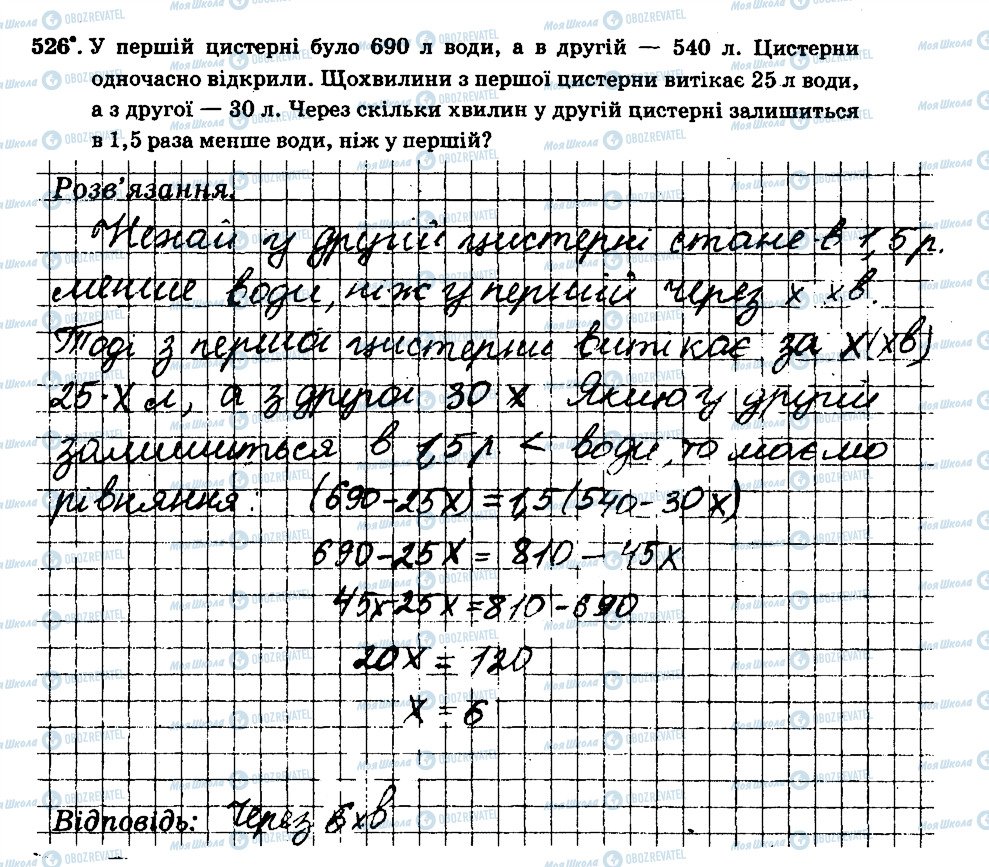 526°. У першій цистерні було 690 л води, а в другій — 540 л. Цистерни
одночасно відкрили. Щохвилини з першої цистерни витікає 25 л води,
а з другої — 30 л. Через скільки хвилин у другій цистерні залишиться
в 1,5 раза менше води, ніж у першій?
Розв'язання.
Нехай у другій цистерні стане в 1,5 р.
менше води, ніж у перший через х хв.
Тоді з першої цистерни витікає за х (хв)
25·х л, а з другої 30 х Якщо у другій
залишиться в 1,5 р < води, то маємо
рівняння: (690-25х) = 1,5 (540-30х)
690-25х = 810 - 45х
45х-25х = 810-690
20х = 120
х = 6
Відповідь: Через 6 хв